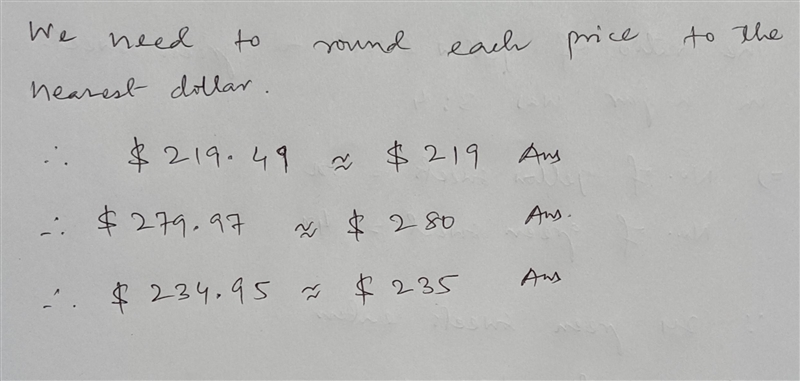 We need to round each price to the
nearest dollar.
∴ $ 219.49 ≈ $ 219 Ans
∴ $ 279.97 ≈ $ 280 Ans.
∴ $ 234.95 ≈ $ 235 Ans